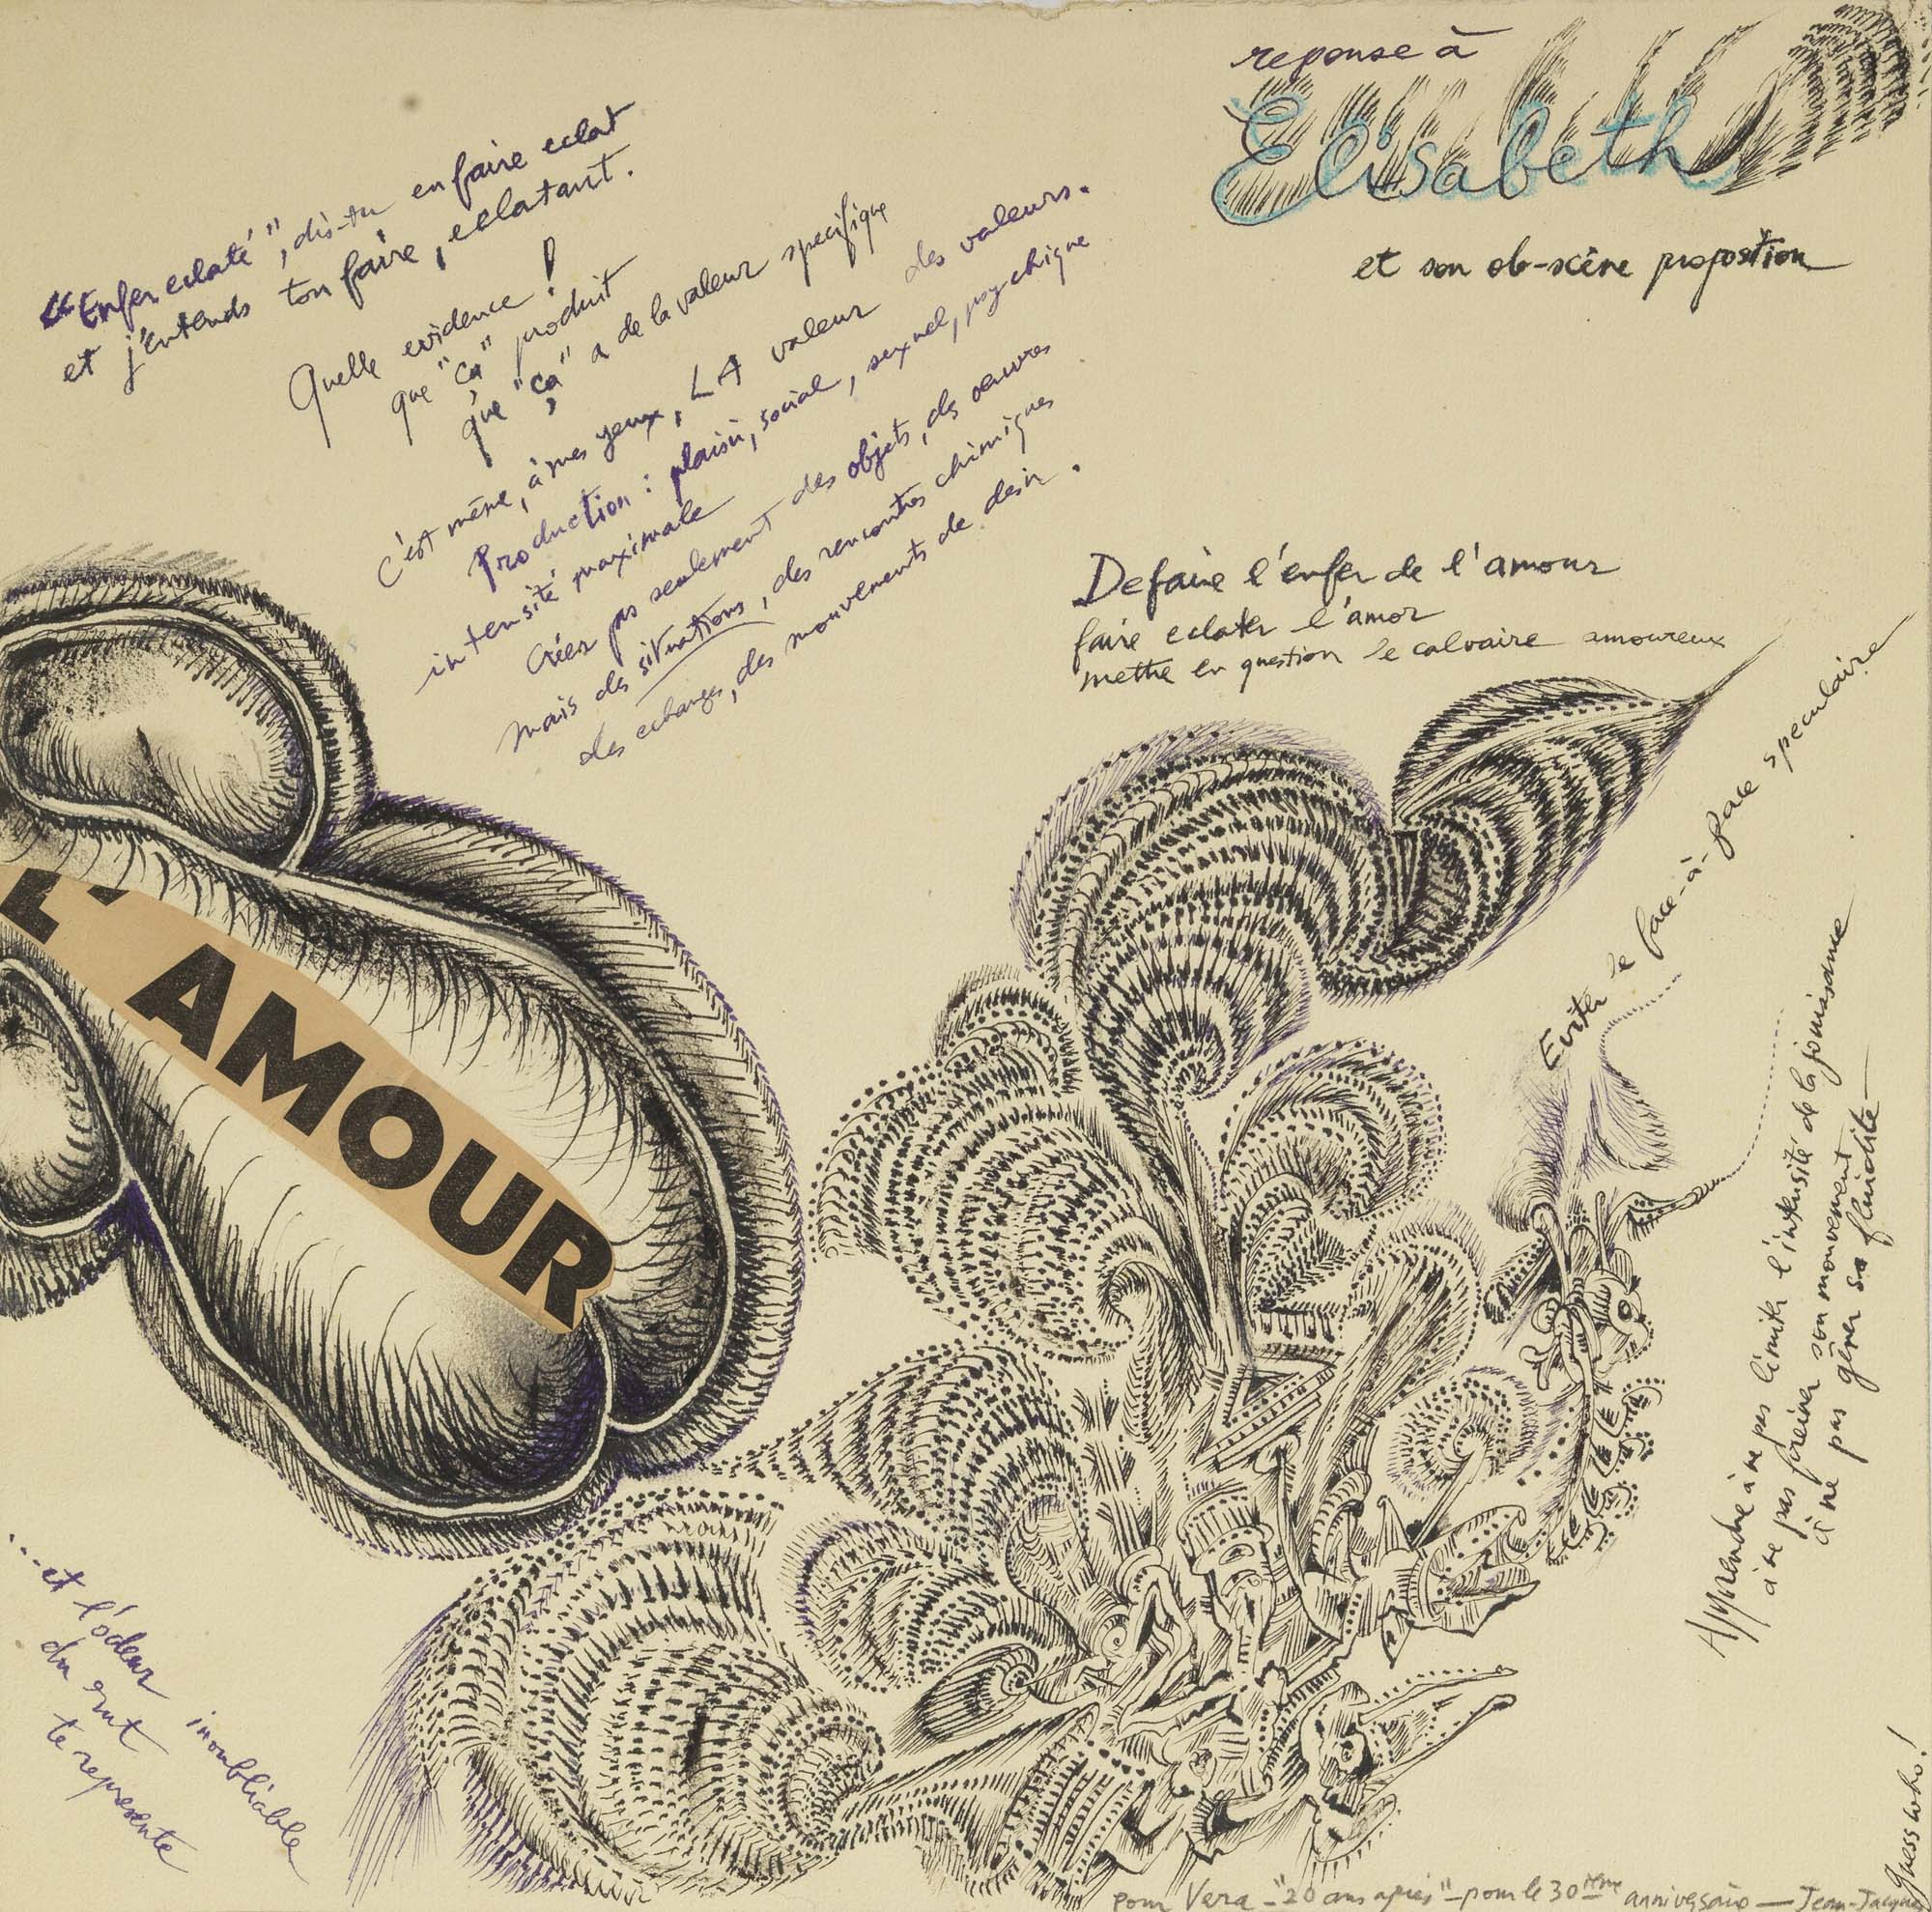 reponse à
Elisabeth
et son ob-scène proposition
"Enfer eclaté", dis-tu en faire eclat
et j'entends ton faire, eclatant.
Quelle evidence !
que "ça" produit
que "ça" a de la valeur specifique
c'est même, à mes yeux, LA valeur des valeurs.
Production : plaisir, social, sexuel, psychique
intensité maximale
Créer pas seulement des objets, des oeuvres
mais des situations, des rencontres chimiques
des echanges, des mouvements de desir.
Defaire l'enfer de l'amour
faire eclater l'amor
mettre en question le calvaire amoureux
Eviter le face-à-face speculaire
L'AMOUR
Apprendre à ne pas limiter l'intensité de la jouissance
à ne pas freiner son mouvement
à ne pas gêner sa fluidité —
...et l'odeur inoubliable
du rut
te represente
Guess who!
pour Vera - "20 ans après" - pour le 30ième anniversaire — Jean-Jacques